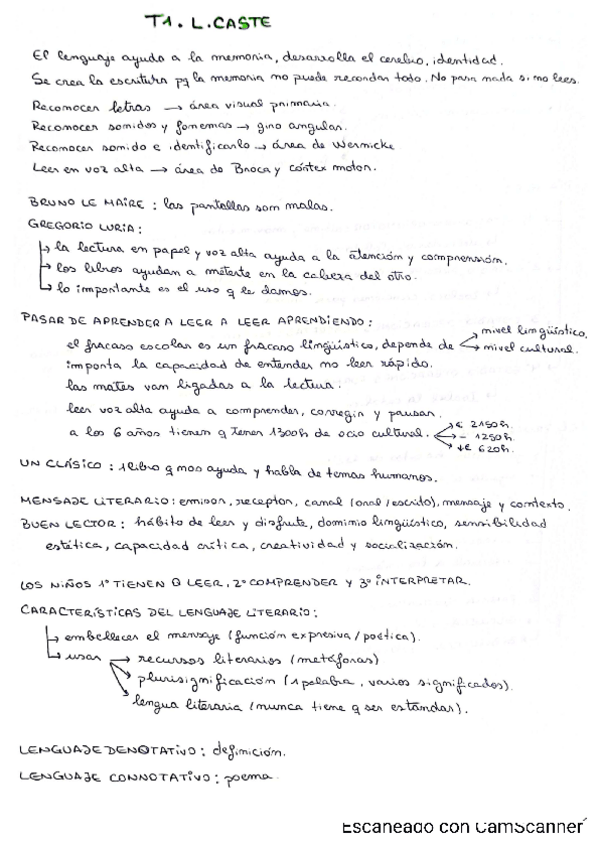 T1. L.CASTE
El lenguaje ayuda a la memoria, desarrolla el cerebro, identidad.
Se crea la escritura pq la memoria no puede recordar todo. No para nada si no lees.
Reconocer letras → área visual primaria.
Reconocer sonidos y fonemas → giro angular.
Reconocer sonido e identificarlo → área de Wernicke
Leer en voz alta → área de Broca y córtex motor.
BRUNO LE MAIRE : las pantallas son malas.
GREGORIO LURIA :
↳ la lectura en papel y voz alta ayuda a la atención y comprensión.
↳ los libros ayudan a meterte en la cabeza del otro.
↳ lo importante es el uso q le damos.
PASAR DE APRENDER A LEER A LEER APRENDIENDO :
el fracaso escolar es un fracaso lingüístico, depende de → nivel lingüístico,
→ nivel cultural.
importa la capacidad de entender no leer rápido.
las mates van ligadas a la lectura.
leer voz alta ayuda a comprender, corregir y pausar.
a los 6 años tienen q tener 1300h de ocio cultural. → € 2150h.
→ – 1250h.
→ ↓€ 620h.
UN CLÁSICO : 1 libro q nos ayuda y habla de temas humanos.
MENSAJE LITERARIO : emisor, receptor, canal (oral/escrito), mensaje y contexto.
BUEN LECTOR : hábito de leer y disfrute, dominio lingüístico, sensibilidad
estética, capacidad crítica, creatividad y socialización.
LOS NIÑOS 1º TIENEN Q LEER, 2º COMPRENDER Y 3º INTERPRETAR.
CARACTERÍSTICAS DEL LENGUAJE LITERARIO :
↳ embellecer el mensaje (función expresiva/poética).
↳ usar → recursos literarios (metáforas)
→ plurisignificación (1 palabra, varios significados).
→ lengua literaria (nunca tiene q ser estándar).
LENGUAJE DENOTATIVO : definición.
LENGUAJE CONNOTATIVO : poema.
Escaneado con CamScanner